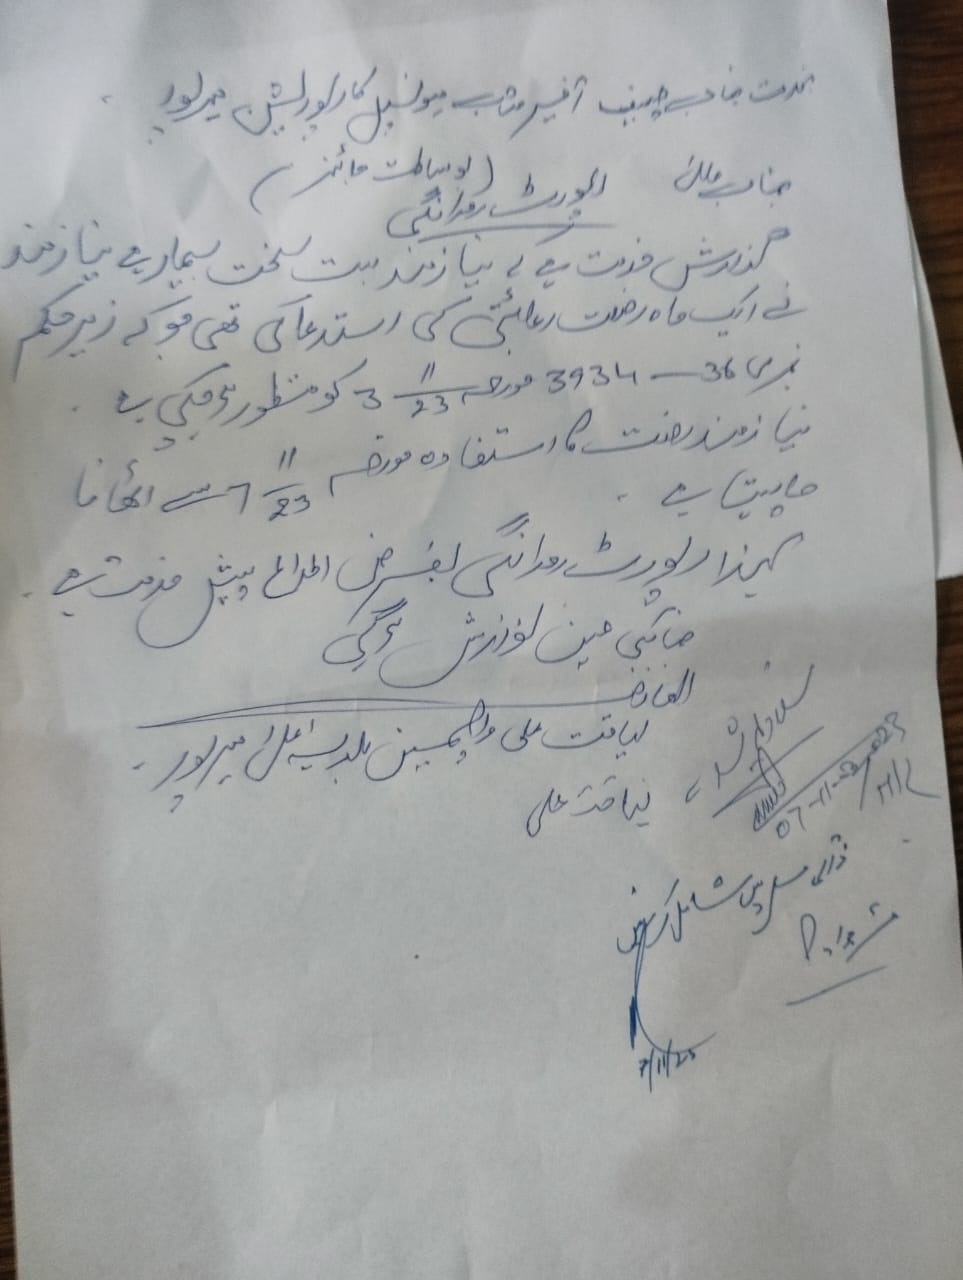 بخدمت جناب چیف آفیسر صاحب میونسپل کارپوریشن میرپور۔
(بوساطت
جناب عالی رپورٹ روانگی
گذارش خدمت ہے کہ نیازمند بہت سخت بیمار ہے نیازمند
نے ایک ماہ رخصت رعائتی کی استدعا کی تھی جو کہ زیر حکم
نمبری 36 — 3934 مورخہ 3 11/23 کو منظور ہو چکی ہے۔
نیازمند رخصت کا استفادہ مورخہ 7 11/23 سے اٹھانا
چاہتا ہے۔
لہذا رپورٹ روانگی بغرض اطلاع پیش خدمت ہے۔
عین نوازش ہوگی
العارض
لیاقت علی واچمین بلدیہ اعلی میرپور۔
لیاقت علی
07-11-2023
ذاتی مسل میں شامل کریں
7/11/23